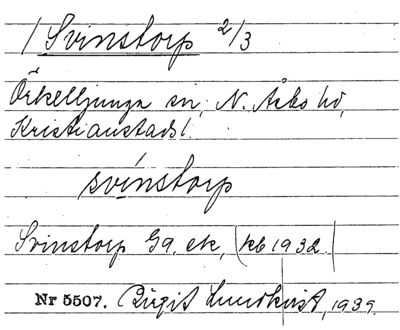 Svinstorp 2/3
Örkelljunga sn, N. Åsbo hd,
Kristianstads l.
svinstorp
Svinstorp Ga. ek, (kb 1932)
Nr 5507. Birgit Lundkvist, 1939.